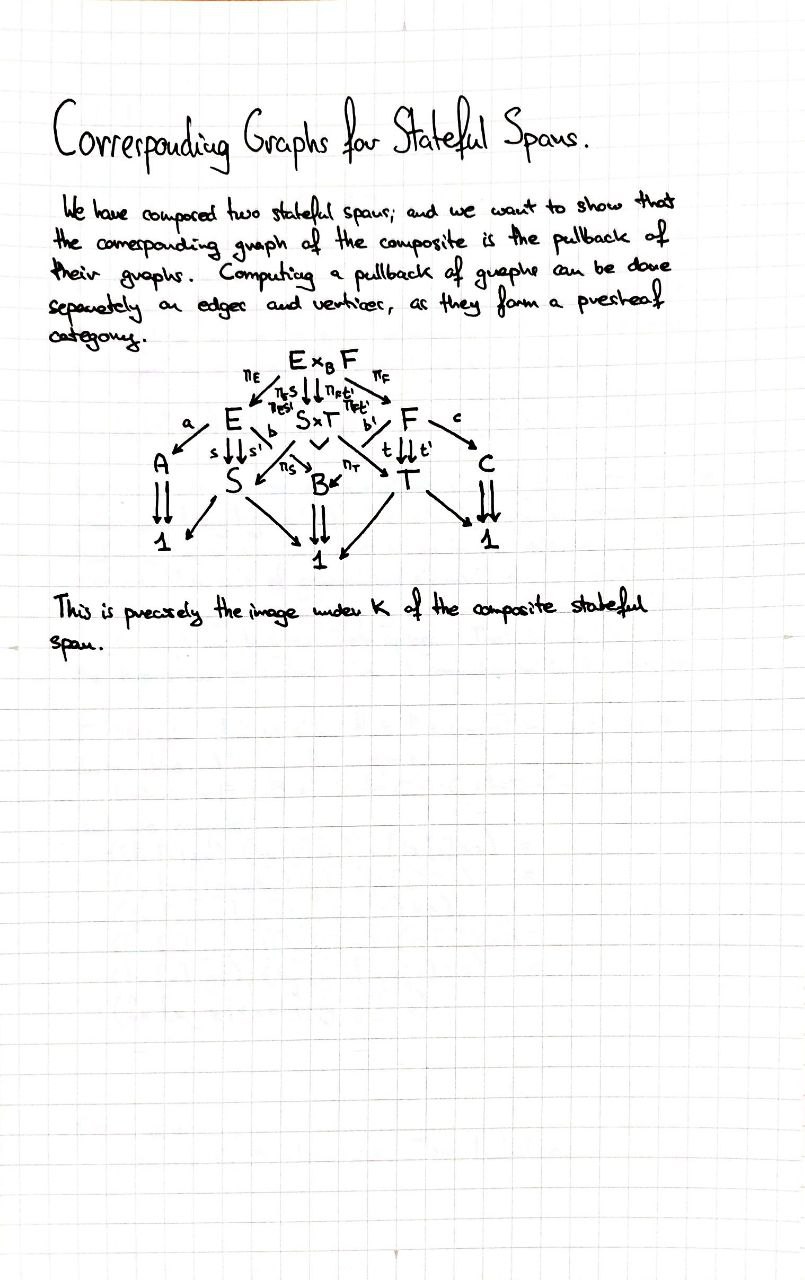 Corresponding Graphs for Stateful Spans.
We have composed two stateful spans; and we want to show that
the corresponding graph of the composite is the pullback of
their graphs. Computing a pullback of graphs can be done
separately on edges and vertices, as they form a presheaf
category.
E ×B F
πE πF
πEs πFt
πEs' πFt'
a E b S×T b' F c
s s' t t'
A S πS B πT T C
1 1 1
This is precisely the image under K of the composite stateful
span.